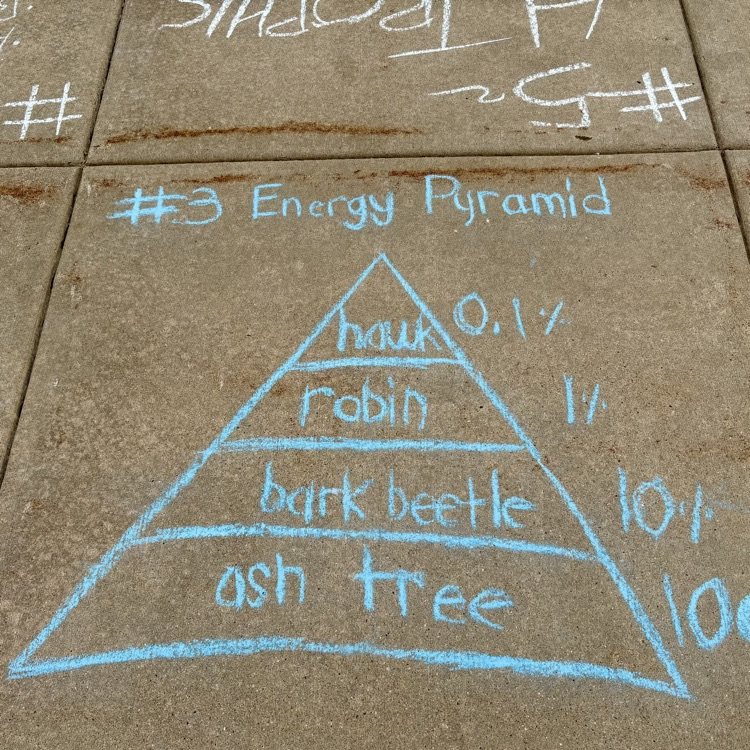 #5
#3 Energy Pyramid
hawk 0.1%
robin 1%
bark beetle 10%
ash tree 100